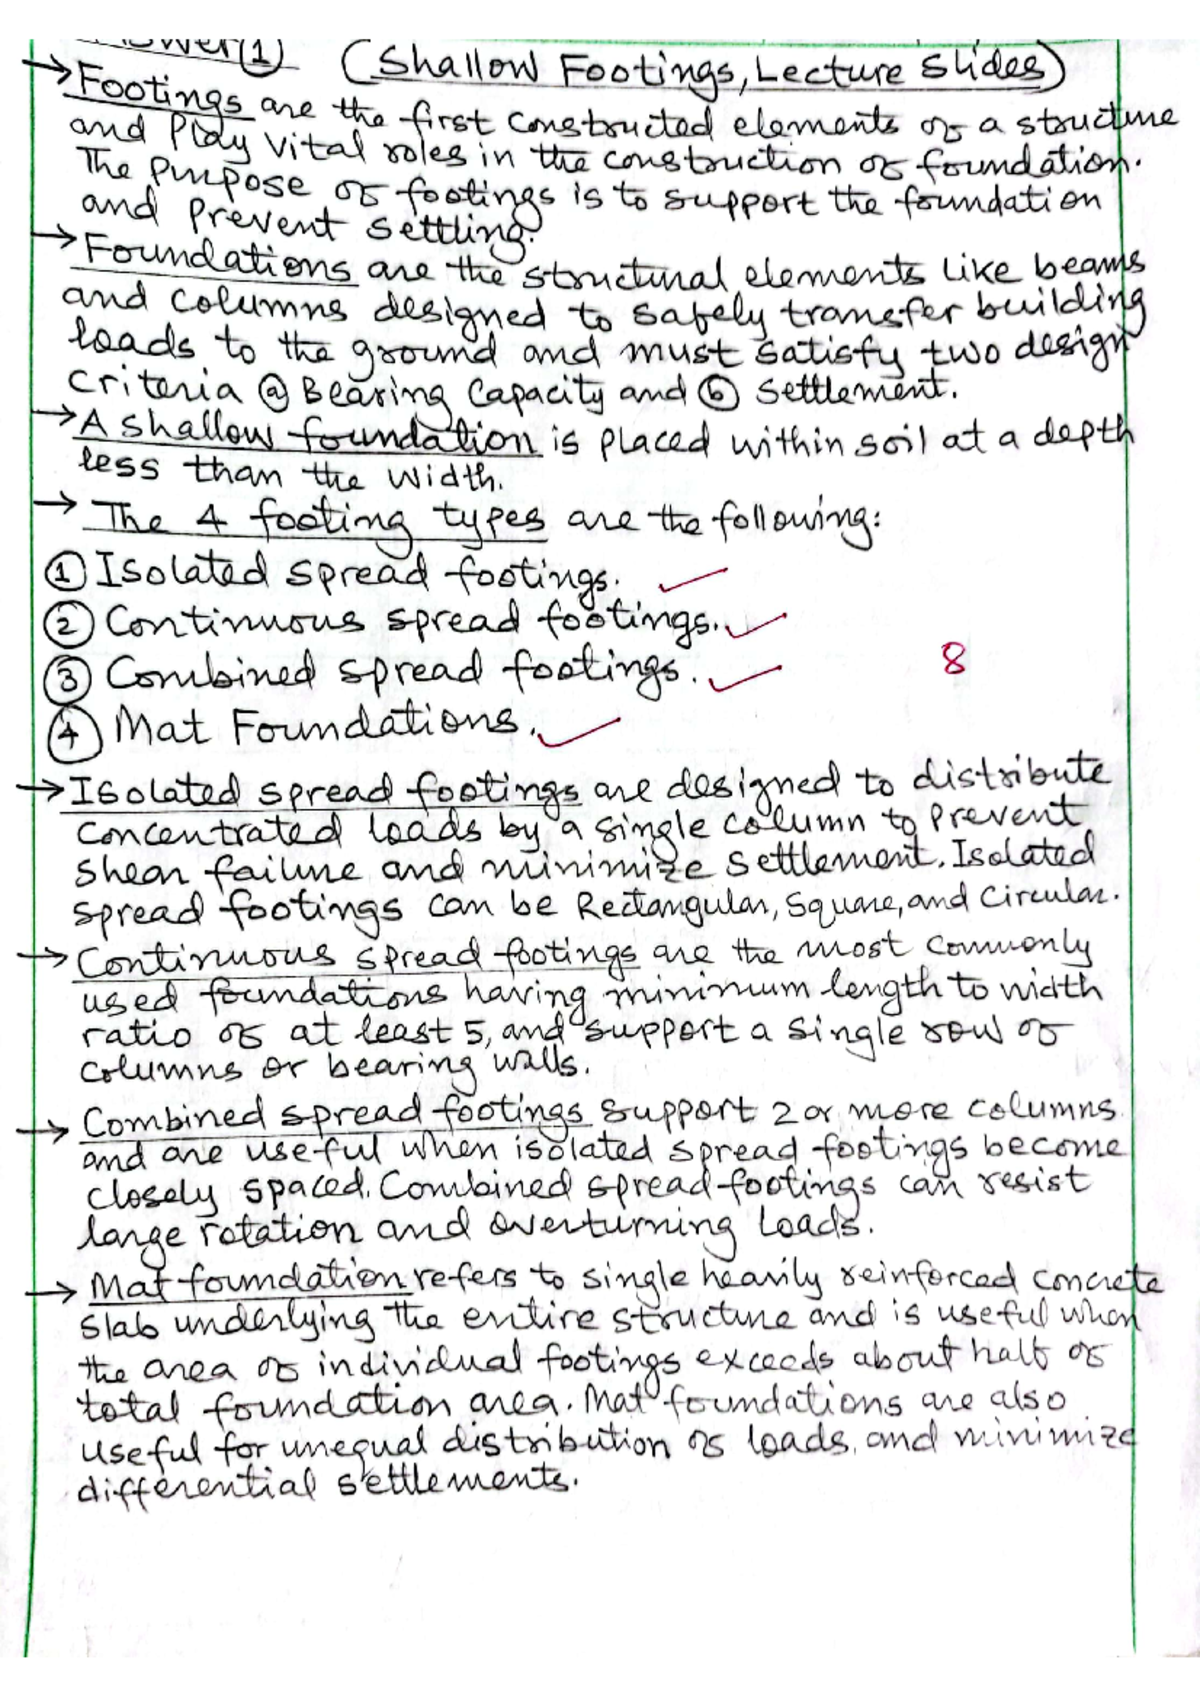 Answer ①
(Shallow Footings, Lecture Slides)
→ Footings are the first constructed elements of a structure
and Play vital roles in the construction of foundation.
The purpose of footings is to support the foundation
and prevent settling.
→ Foundations are the structural elements like beams
and columns designed to safely transfer building
loads to the ground and must satisfy two design
criteria ⓐ Bearing Capacity and ⓑ Settlement.
→ A shallow foundation is placed within soil at a depth
less than the width.
→ The 4 footing types are the following:
① Isolated spread footings.
② Continuous spread footings.
③ Combined spread footings.
8
④ Mat Foundations.
→ Isolated spread footings are designed to distribute
concentrated loads by a single column to prevent
shear failure and minimize settlement. Isolated
spread footings can be Rectangular, Square, and Circular.
→ Continuous spread footings are the most commonly
used foundations having minimum length to width
ratio of at least 5, and support a single row of
columns or bearing walls.
→ Combined spread footings support 2 or more columns
and are useful when isolated spread footings become
closely spaced. Combined spread footings can resist
large rotation and overturning loads.
→ Mat foundation refers to single heavily reinforced concrete
slab underlying the entire structure and is useful when
the area of individual footings exceeds about half of
total foundation area. Mat foundations are also
useful for unequal distribution of loads, and minimize
differential settlements.